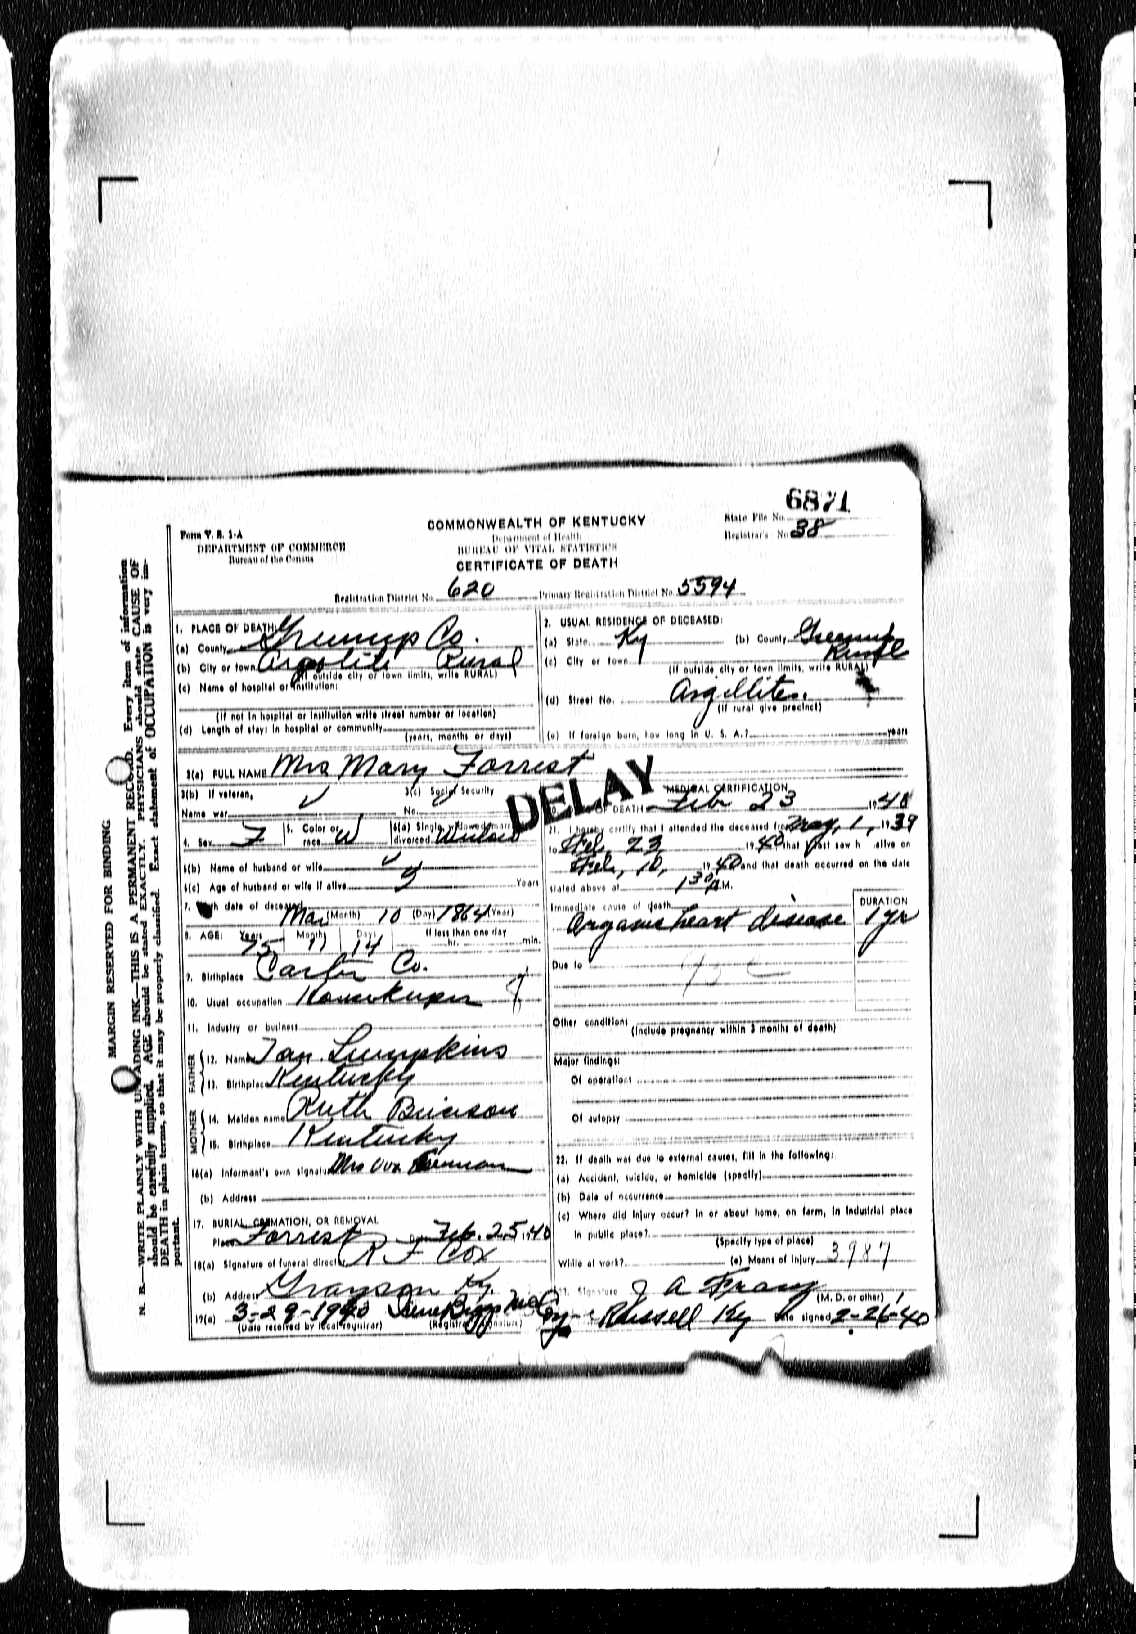 6871
State File No.
Registrar's No. 38
Form V. S. 1-A
DEPARTMENT OF COMMERCE
Bureau of the Census
COMMONWEALTH OF KENTUCKY
Department of Health
BUREAU OF VITAL STATISTICS
CERTIFICATE OF DEATH
Registration District No. 620 Primary Registration District No. 5594
MARGIN RESERVED FOR BINDING
N. B.—WRITE PLAINLY WITH UNFADING INK—THIS IS A PERMANENT RECORD. Every item of information
should be carefully supplied. AGE should be stated EXACTLY. PHYSICIANS should state CAUSE OF
DEATH in plain terms, so that it may be properly classified. Exact statement of OCCUPATION is very im-
portant.
1. PLACE OF DEATH:
(a) County Greenup Co.
(b) City or town Argolite Rural
(If outside city or town limits, write RURAL)
(c) Name of hospital or institution:
(If not in hospital or institution write street number or location)
(d) Length of stay: In hospital or community
(years, months or days)
2. USUAL RESIDENCE OF DECEASED:
(a) State Ky (b) County Greenup
(c) City or town Rural
(If outside city or town limits, write RURAL)
(d) Street No. Argillites.
(If rural give precinct)
(e) If foreign born, how long in U. S. A.? years
3(a) FULL NAME Mrs Mary Forrest
DELAY
3(b) If veteran,
Name war
3(c) Social Security
No.
4. Sex F 5. Color or race W 6(a) Single, widowed, married, divorced Widow
6(b) Name of husband or wife
6(c) Age of husband or wife if alive Years
7. Birth date of deceased Mar (Month) 10 (Day) 1864 (Year)
8. AGE: Years 75 Months 11 Days 14 If less than one day
hr. min.
9. Birthplace Carter Co.
10. Usual occupation Housekeeper
11. Industry or business
FATHER
12. Name Lumpkins
13. Birthplace Kentucky
MOTHER
14. Maiden name Ruth
15. Birthplace Kentucky
16(a) Informant's own signature Mrs
(b) Address
17. BURIAL, CREMATION, OR REMOVAL
Place Forrest Feb. 25, 1940
18(a) Signature of funeral director R F Cox
(b) Address Grayson Ky.
19(a) 3-29-1940
(Date received by local registrar) (Registrar's signature)
MEDICAL CERTIFICATION
20. DATE OF DEATH Feb 23 1940
21. I hereby certify that I attended the deceased from May, 1, 1939
to Feb, 23 1940 that I last saw h alive on
Feb, 10, 1940 and that death occurred on the date
stated above at 1 30 A M.
Immediate cause of death DURATION
Organic heart disease 1 yr
Due to
Other conditions
(Include pregnancy within 3 months of death)
Major findings:
Of operations
Of autopsy
22. If death was due to external causes, fill in the following:
(a) Accident, suicide, or homicide (specify)
(b) Date of occurrence
(c) Where did injury occur? In or about home, on farm, in industrial place
in public place?
(Specify type of place)
While at work? (e) Means of injury 3987
Signature J A
(M. D. or other)
Russell Ky Date signed 2-26-40